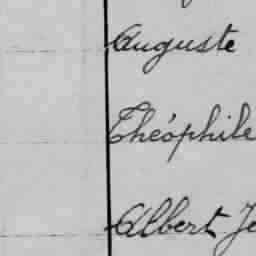 Auguste
Théophile
Albert Je